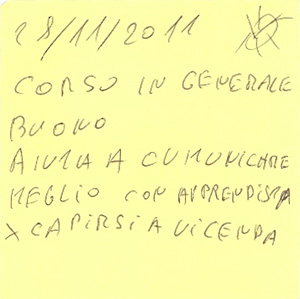 28/11/2011
CORSO IN GENERALE
BUONO
AIUTA A COMUNICARE
MEGLIO CON APPRENDISTA
X CAPIRSI A VICENDA